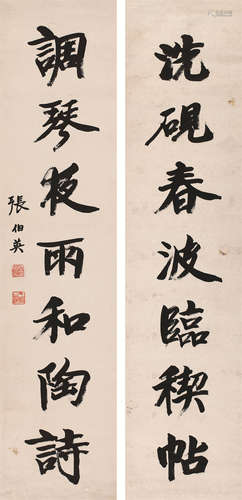 洗硯春波臨禊帖
調琴夜雨和陶詩
張伯英